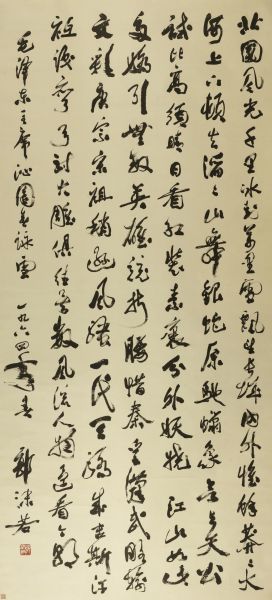 北國風光千里冰封萬里雪飄望長城內外惟餘莽々大
河上下頓失滔々山舞銀蛇原馳蠟象欲與天公
試比高須晴日看紅裝素裹分外妖嬈江山如此
多嬌引無數英雄競折腰惜秦皇漢武略輸
文彩唐宗宋祖稍遜風騷一代天驕成吉思汗
祇識彎弓射大雕俱往矣數風流人物還看今朝
毛澤東主席沁園春詠雪 一九六四年春 郭沫若